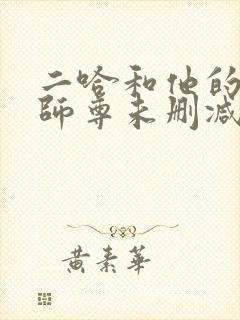 二哈和他的
師尊未删减
黄素華